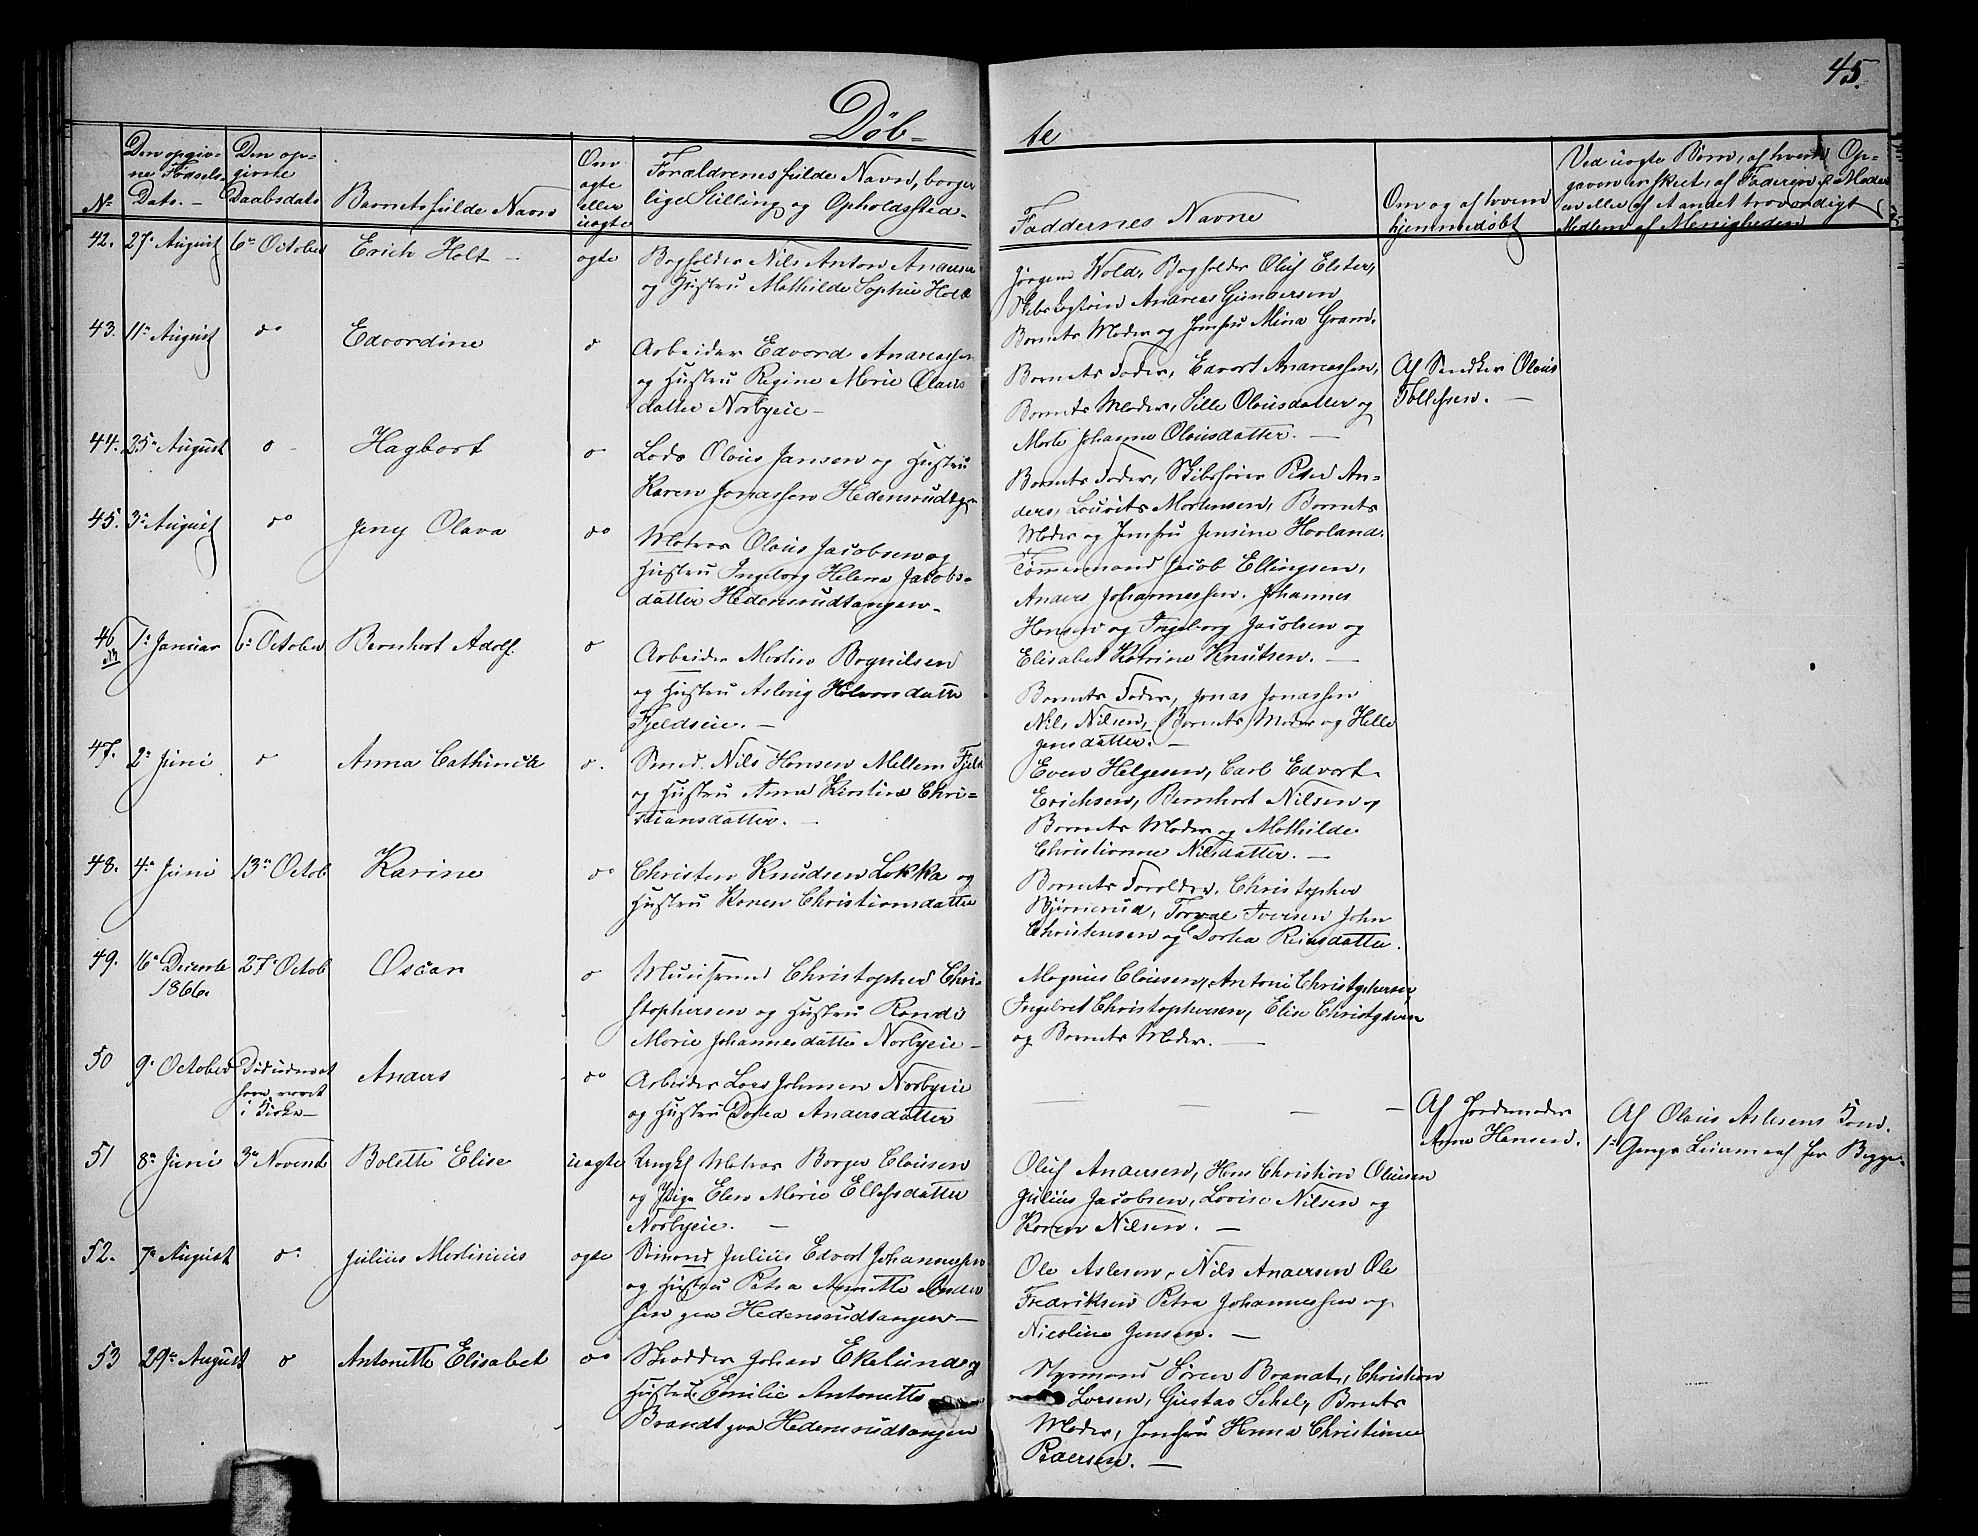 45.
Døb-
te
No
Den opgiv-
ne Fødsels-
Dato. -
Den op-
givne
Daabsdato
Barnets fulde Navn
Om
ægte
eller
uægte
Forældrenes fulde Navn, borger
lige Stilling og Opholdssted.
Faddernes Navne
Om og af hvem
hjemmedøbt
Ved uægte Børn, af hvem Op-
gaven er skeet, af Faderen
eller af et andet troværdigt
Medlem af Menigheden
42. 27de August 6te October Erich Holt - ægte
Bogholder Nils Anton Andersen
og Hustru Mathilde Sophie Holt
Jørgen Wold, Bogholder Oluf Elster,
Andreas Gundersen
Barnets Moder og Jomfru Mina Gram.
43. 11te August do Edvardine do
Arbeider Edvard Andreassen
og Hustru Regine Marie Olaus
datter Norbyeie -
Barnets Fader, Edvart Andreassen,
Barnets Moder, Sille Olausdatter og
Marte Johanne Olausdatter. -
Af Snedker Olaus
Tollefsen. -
44. 25de August do Hagbart do
Lods Olaus Jansen og Hustru
Karen Jonassen Hedensrudtgn
Barnets Fader, Skibsfører Peder An-
ders, Lourits Mortensen, Barnets
Moder og Jomfru Jensine Hovland.
45. 3de August do Jeny Olava do
Matros Olaus Jacobsen og
Hustru Ingeborg Helene Jacobs-
datter Hedensrudtangen -
Tømmermand Jacob Ellingsen,
Anders Johannessen. Johannes
Hansen og Ingeborg Jacobsen og
Elisabet Katrine Knutsen. -
46 1ste Januar 6te October Bernhart Adolf. do
Arbeider Martin Bognilsen
og Hustru Aslaug Halvorsdatter
Fjeldseie. -
Barnets Fader, Jonas Jonassen
Nils Nilsen, Barnets Moder og Helle
Jensdatter. -
47. 2den Juni do Anna Cathinca do.
Smed. Nils Hansen Mellem Fjeld
og Hustru Anne Kirstine Chri-
stiansdatter. -
Even Helgesen, Carl Edvart
Erichsen, Bernhart Nilsen og
Barnets Moder og Mathilde
Christianne Nilsdatter. -
48. 4de Juni 13de Octob Karine do
Christen Knudsen Løkka og
Hustru Karen Christiansdatter
Barnets Forælder, Christopher
Bjørnerud, Torval Iversen John
Christensen og Dorthea Reiersdatter.
49. 16de Decembr
1866. 27de Octob Oscar do
Muurmand Christopher Chri-
stophersen og Hustru Randi
Marie Johannesdatter Norbyeie -
Magnus Clausen, Antoni Christophersen,
Ingebret Christophersen, Elise Christophersen
og Barnets Moder. -
50 9de October Død uden at
have været
i Kirke - Anders do
Arbeider Lars Johnsen Norbyeie
og Hustru Dorthea Andersdatter
— — —
Af Jordemoder
Anne Hansen.
51 8de Juni 3die Novemb Bolette Elise uægte
Ungkl Matros Borger Clausen
og Pige Elen Marie Ellefsdatter
Norbyeie. -
Oluf Andersen, Hans Christian Olausen
Julius Jacobsen, Lovise Nilsen og
Karen Nilsen. -
Af Olaus Aslesens Kone.
1ste Gangs Leiermaal for Begge.
52. 7de August do Julius Martinius ægte
Sømand Julius Edvart Johannessen
og Hustru Petra Annette Ander
sen paa Hedensrudtangen -
Ole Aslesen, Nils Andersen Ole
Fredriksen Petra Johannessen og
Nicoline Jensen. -
53 29de August do Antonette Elisabet do
Skredder Johan Ekelund og
Hustru Emilie Antonette
Brandt paa Hedensrudtangen
Styrmand Søren Brandt, Christian
Larsen, Gustav Schel, Barnets
Moder, Jomfru Hanna Christiane
Pedersen. -